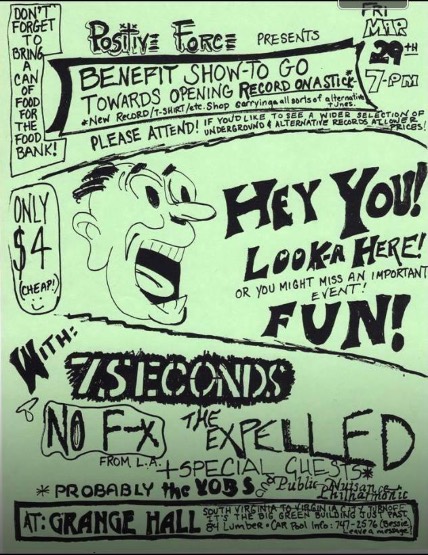 DON'T
FORGET
TO
BRING
A
CAN
OF
FOOD
FOR
THE
FOOD
BANK!
POSITIVE FORCE PRESENTS
FRI
MAR
29TH
7-PM
BENEFIT SHOW-TO GO
TOWARDS OPENING RECORD ON A STICK-
*New Record/T-SHIRT/etc. Shop carrying all sorts of alternative
Tunes.
PLEASE ATTEND! IF YOU'D LIKE TO SEE A WIDER SELECTION OF
UNDERGROUND & ALTERNATIVE RECORDS AT LOWER
PRICES!
ONLY
$4
(CHEAP!)
HEY YOU!
LOOK-A HERE!
OR YOU MIGHT MISS AN IMPORTANT
EVENT!
FUN!
WITH:
7SECONDS
NO F-X
FROM L.A.
THE
EXPELLED
+SPECIAL GUESTS*
* PROBABLY the YOBS & Public Nuisance
Philharmonic
AT: GRANGE HALL
SOUTH VIRGINIA TO VIRGINIA CITY TURNOFF
IT'S THE BIG GREEN BUILDING JUST PAST
84 Lumber • CAR Pool Info: 747-2576 (Bessie)
Leave a message!